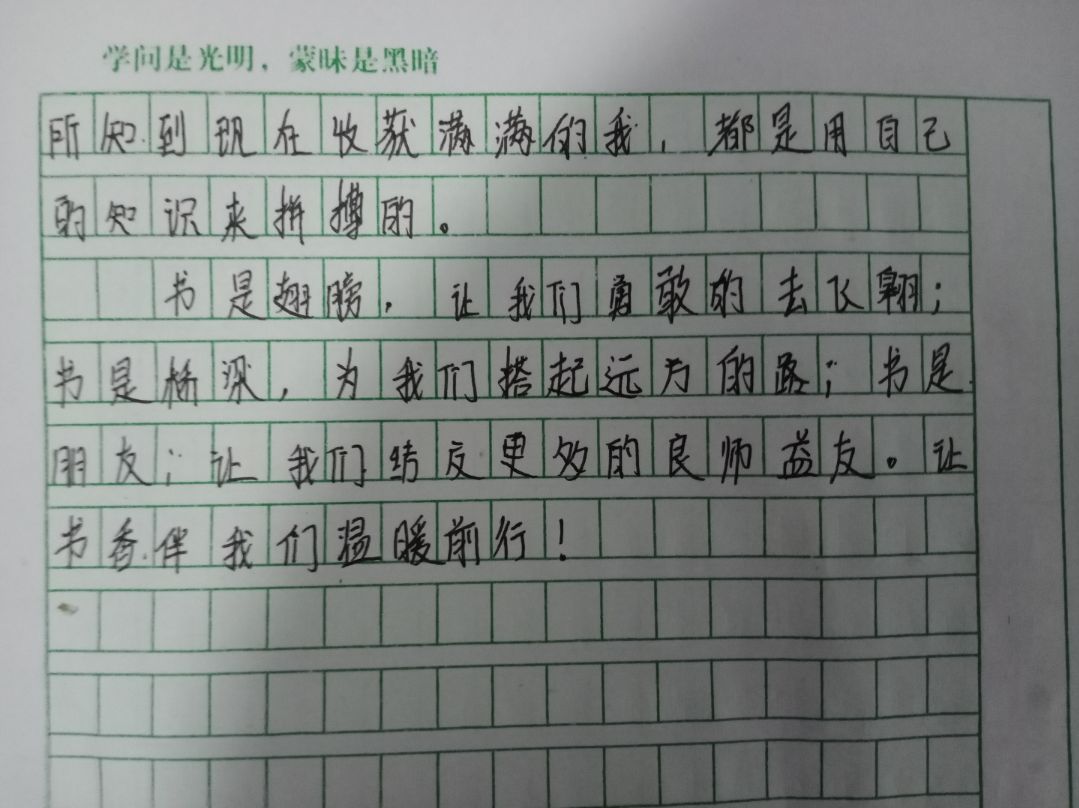 学问是光明，蒙昧是黑暗
所知到现在收获满满的我，都是用自己
的知识来拼搏的。
书是翅膀，让我们勇敢的去飞翱；
书是杨深，为我们搭起远方的路；书是
朋友；让我们结交更多的良师益友。让
书香伴我们温暖前行！